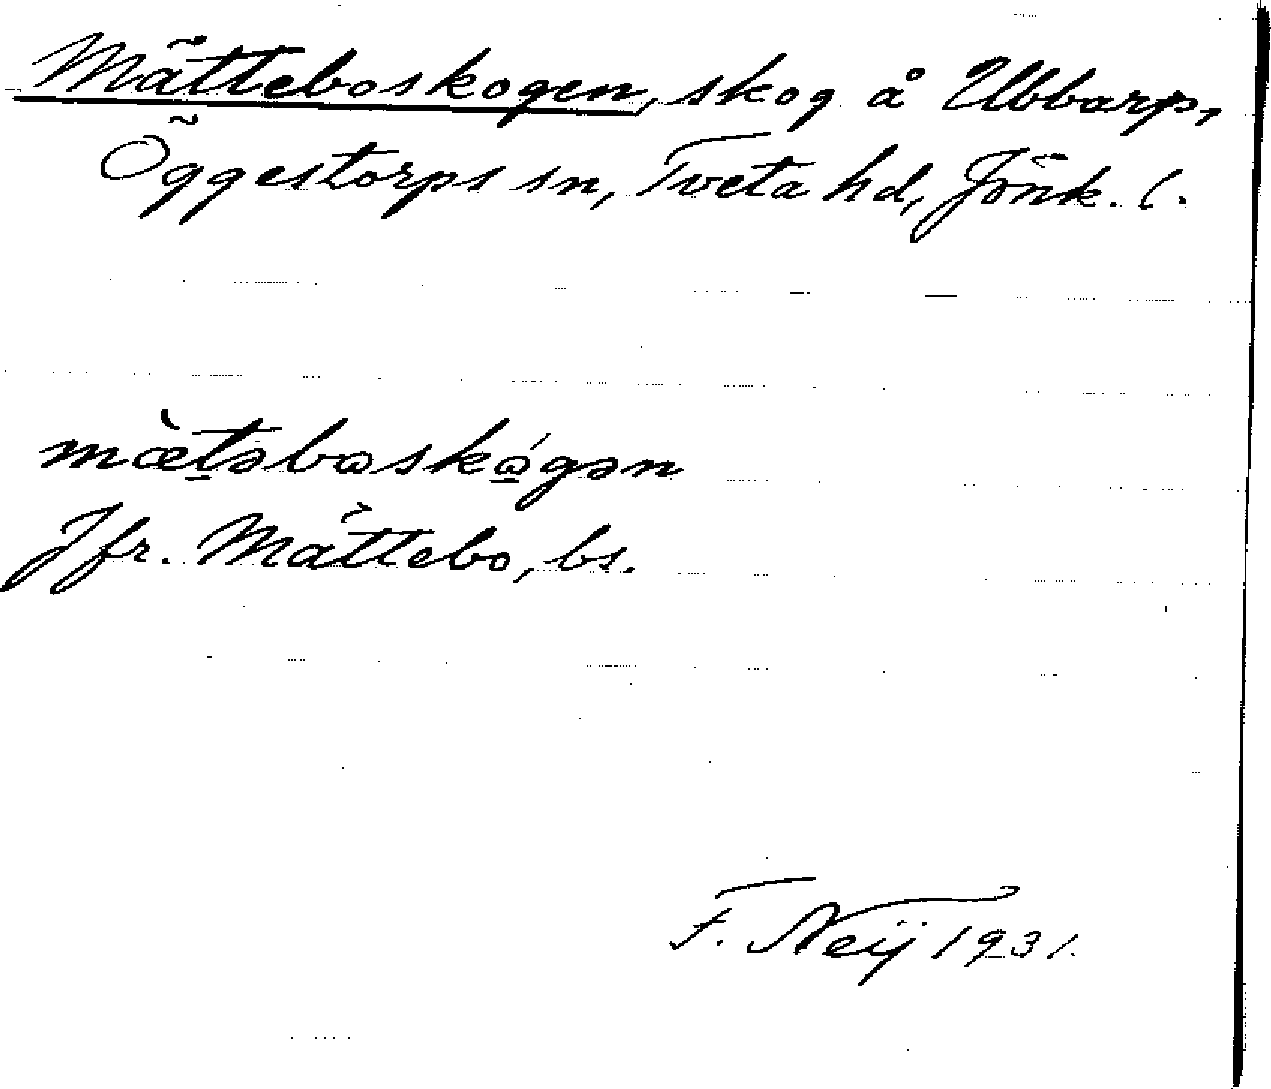 Mätteboskogen, skog å Ubbarp,
Öggestorps sn, Tveta hd, Jönk. l.
mæ̀təboskó̱gən
Jfr. Mättebo, bs.
F. Neij 1931.